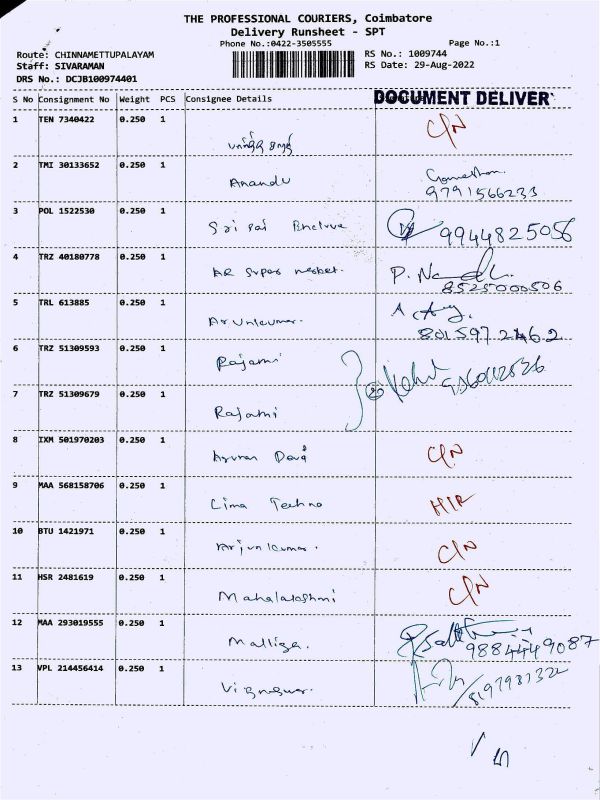 THE PROFESSIONAL COURIERS, Coimbatore
Delivery Runsheet - SPT
Phone No.:0422-3505555
Page No.:1
Route: CHINNAMETTUPALAYAM
RS No.: 1009744
Staff: SIVARAMAN
RS Date: 29-Aug-2022
DRS No.: DCJB100974401
S No Consignment No Weight PCS Consignee Details
DOCUMENT DELIVER
1 TEN 7340422 0.250 1 C/N
2 TMI 30133652 0.250 1 Anandu
9791566233
3 POL 1522530 0.250 1 Sri Sai 9944825056
4 TRZ 40180778 0.250 1 AR Super
8525000506
5 TRL 613885 0.250 1 Arunkumar.
8015972462
6 TRZ 51309593 0.250 1 Rajami
7 TRZ 51309679 0.250 1 Rajami
8 IXM 501970203 0.250 1 C/N
9 MAA 568158706 0.250 1 Lima Techno H/R
10 BTU 1421971 0.250 1 Arjunkumar. C/N
11 HSR 2481619 0.250 1 Mahalakshmi C/N
12 MAA 293019555 0.250 1 Malliga.
9884449087
13 VPL 214456414 0.250 1